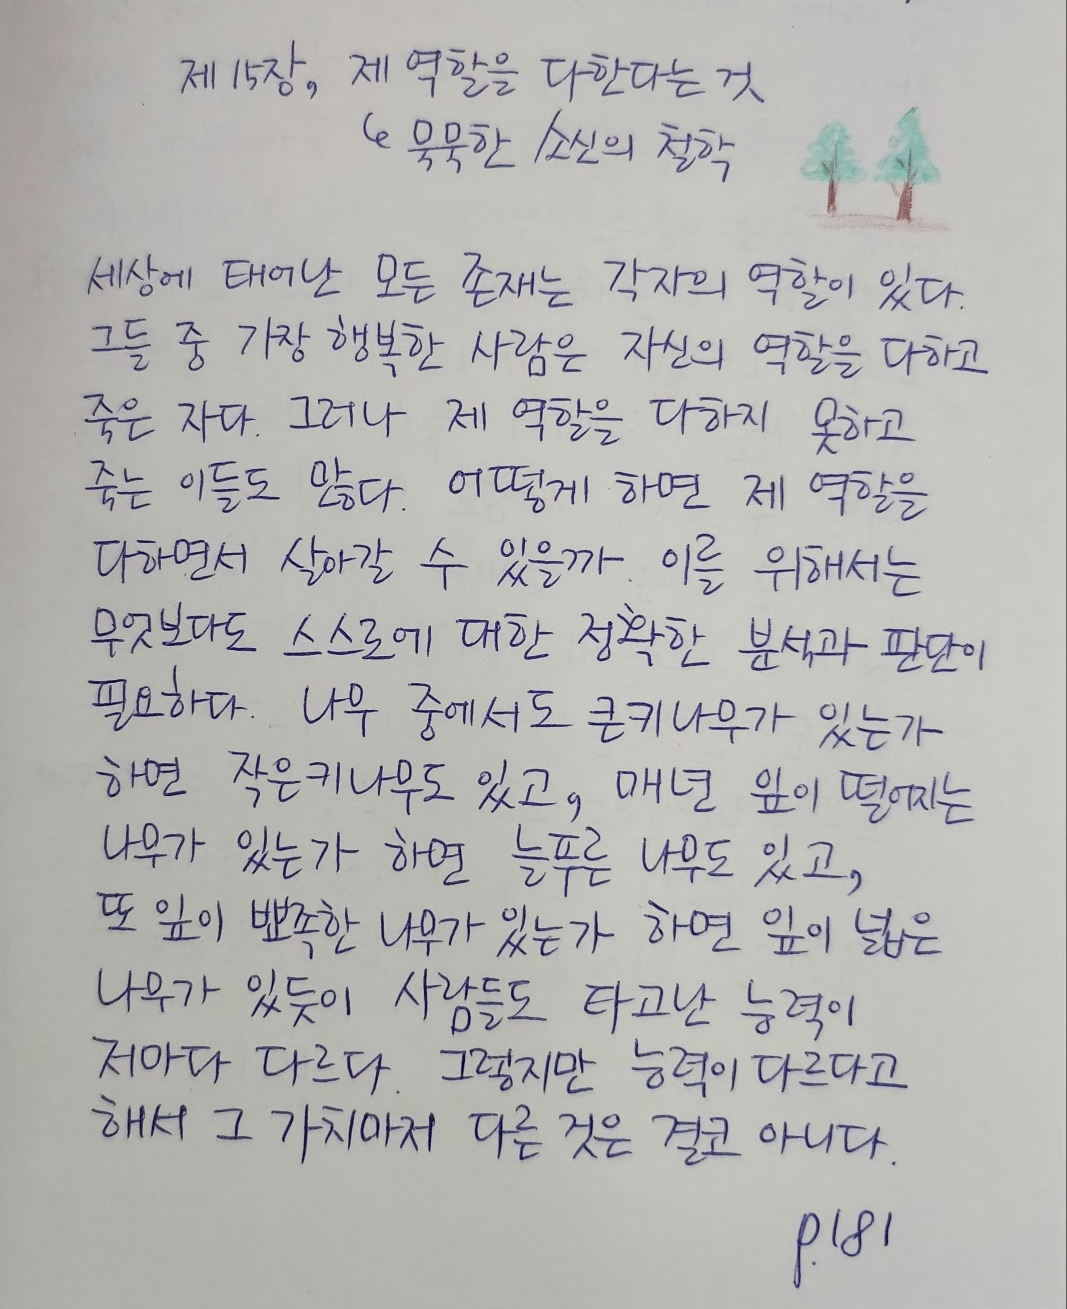 제 15장, 제 역할을 다한다는 것
↳ 묵묵한 소신의 철학
세상에 태어난 모든 존재는 각자의 역할이 있다.
그들 중 가장 행복한 사람은 자신의 역할을 다하고
죽은 자다. 그러나 제 역할을 다하지 못하고
죽는 이들도 많다. 어떻게 하면 제 역할을
다하면서 살아갈 수 있을까. 이를 위해서는
무엇보다도 스스로에 대한 정확한 분석과 판단이
필요하다. 나무 중에서도 큰키나무가 있는가
하면 작은키나무도 있고, 매년 잎이 떨어지는
나무가 있는가 하면 늘푸른 나무도 있고,
또 잎이 뾰족한 나무가 있는가 하면 잎이 넓은
나무가 있듯이 사람들도 타고난 능력이
저마다 다르다. 그렇지만 능력이 다르다고
해서 그 가치마저 다른 것은 결코 아니다.
p.181